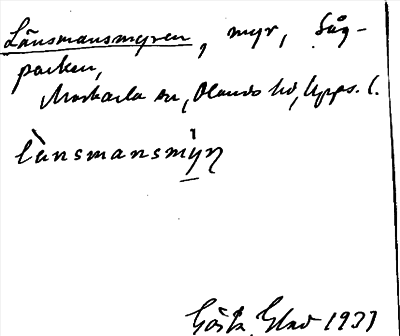 Länsmansmyren, myr, Såg-
parken,
Morkarla sn, Olands hd, Upps. l.
lànsmansmỳ̱ṛṇ
Gösta 1937